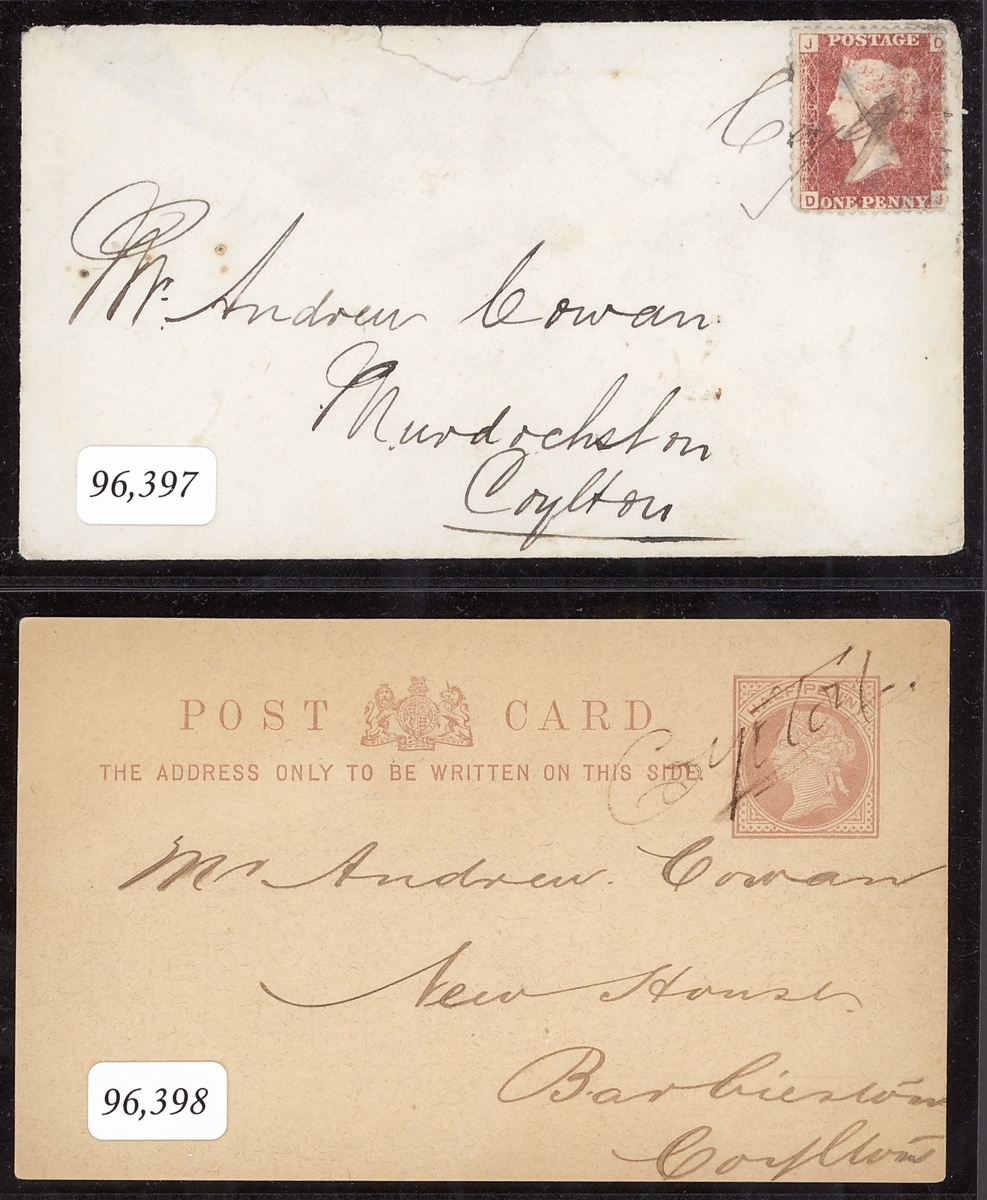 J POSTAGE D
D ONE PENNY J
Mr. Andrew Cowan
Murdochston
Coylton
96,397
POST CARD
THE ADDRESS ONLY TO BE WRITTEN ON THIS SIDE.
HALFPENNY
Coylton
Mr Andrew Cowan
New House
Barbieston
Coylton
96,398